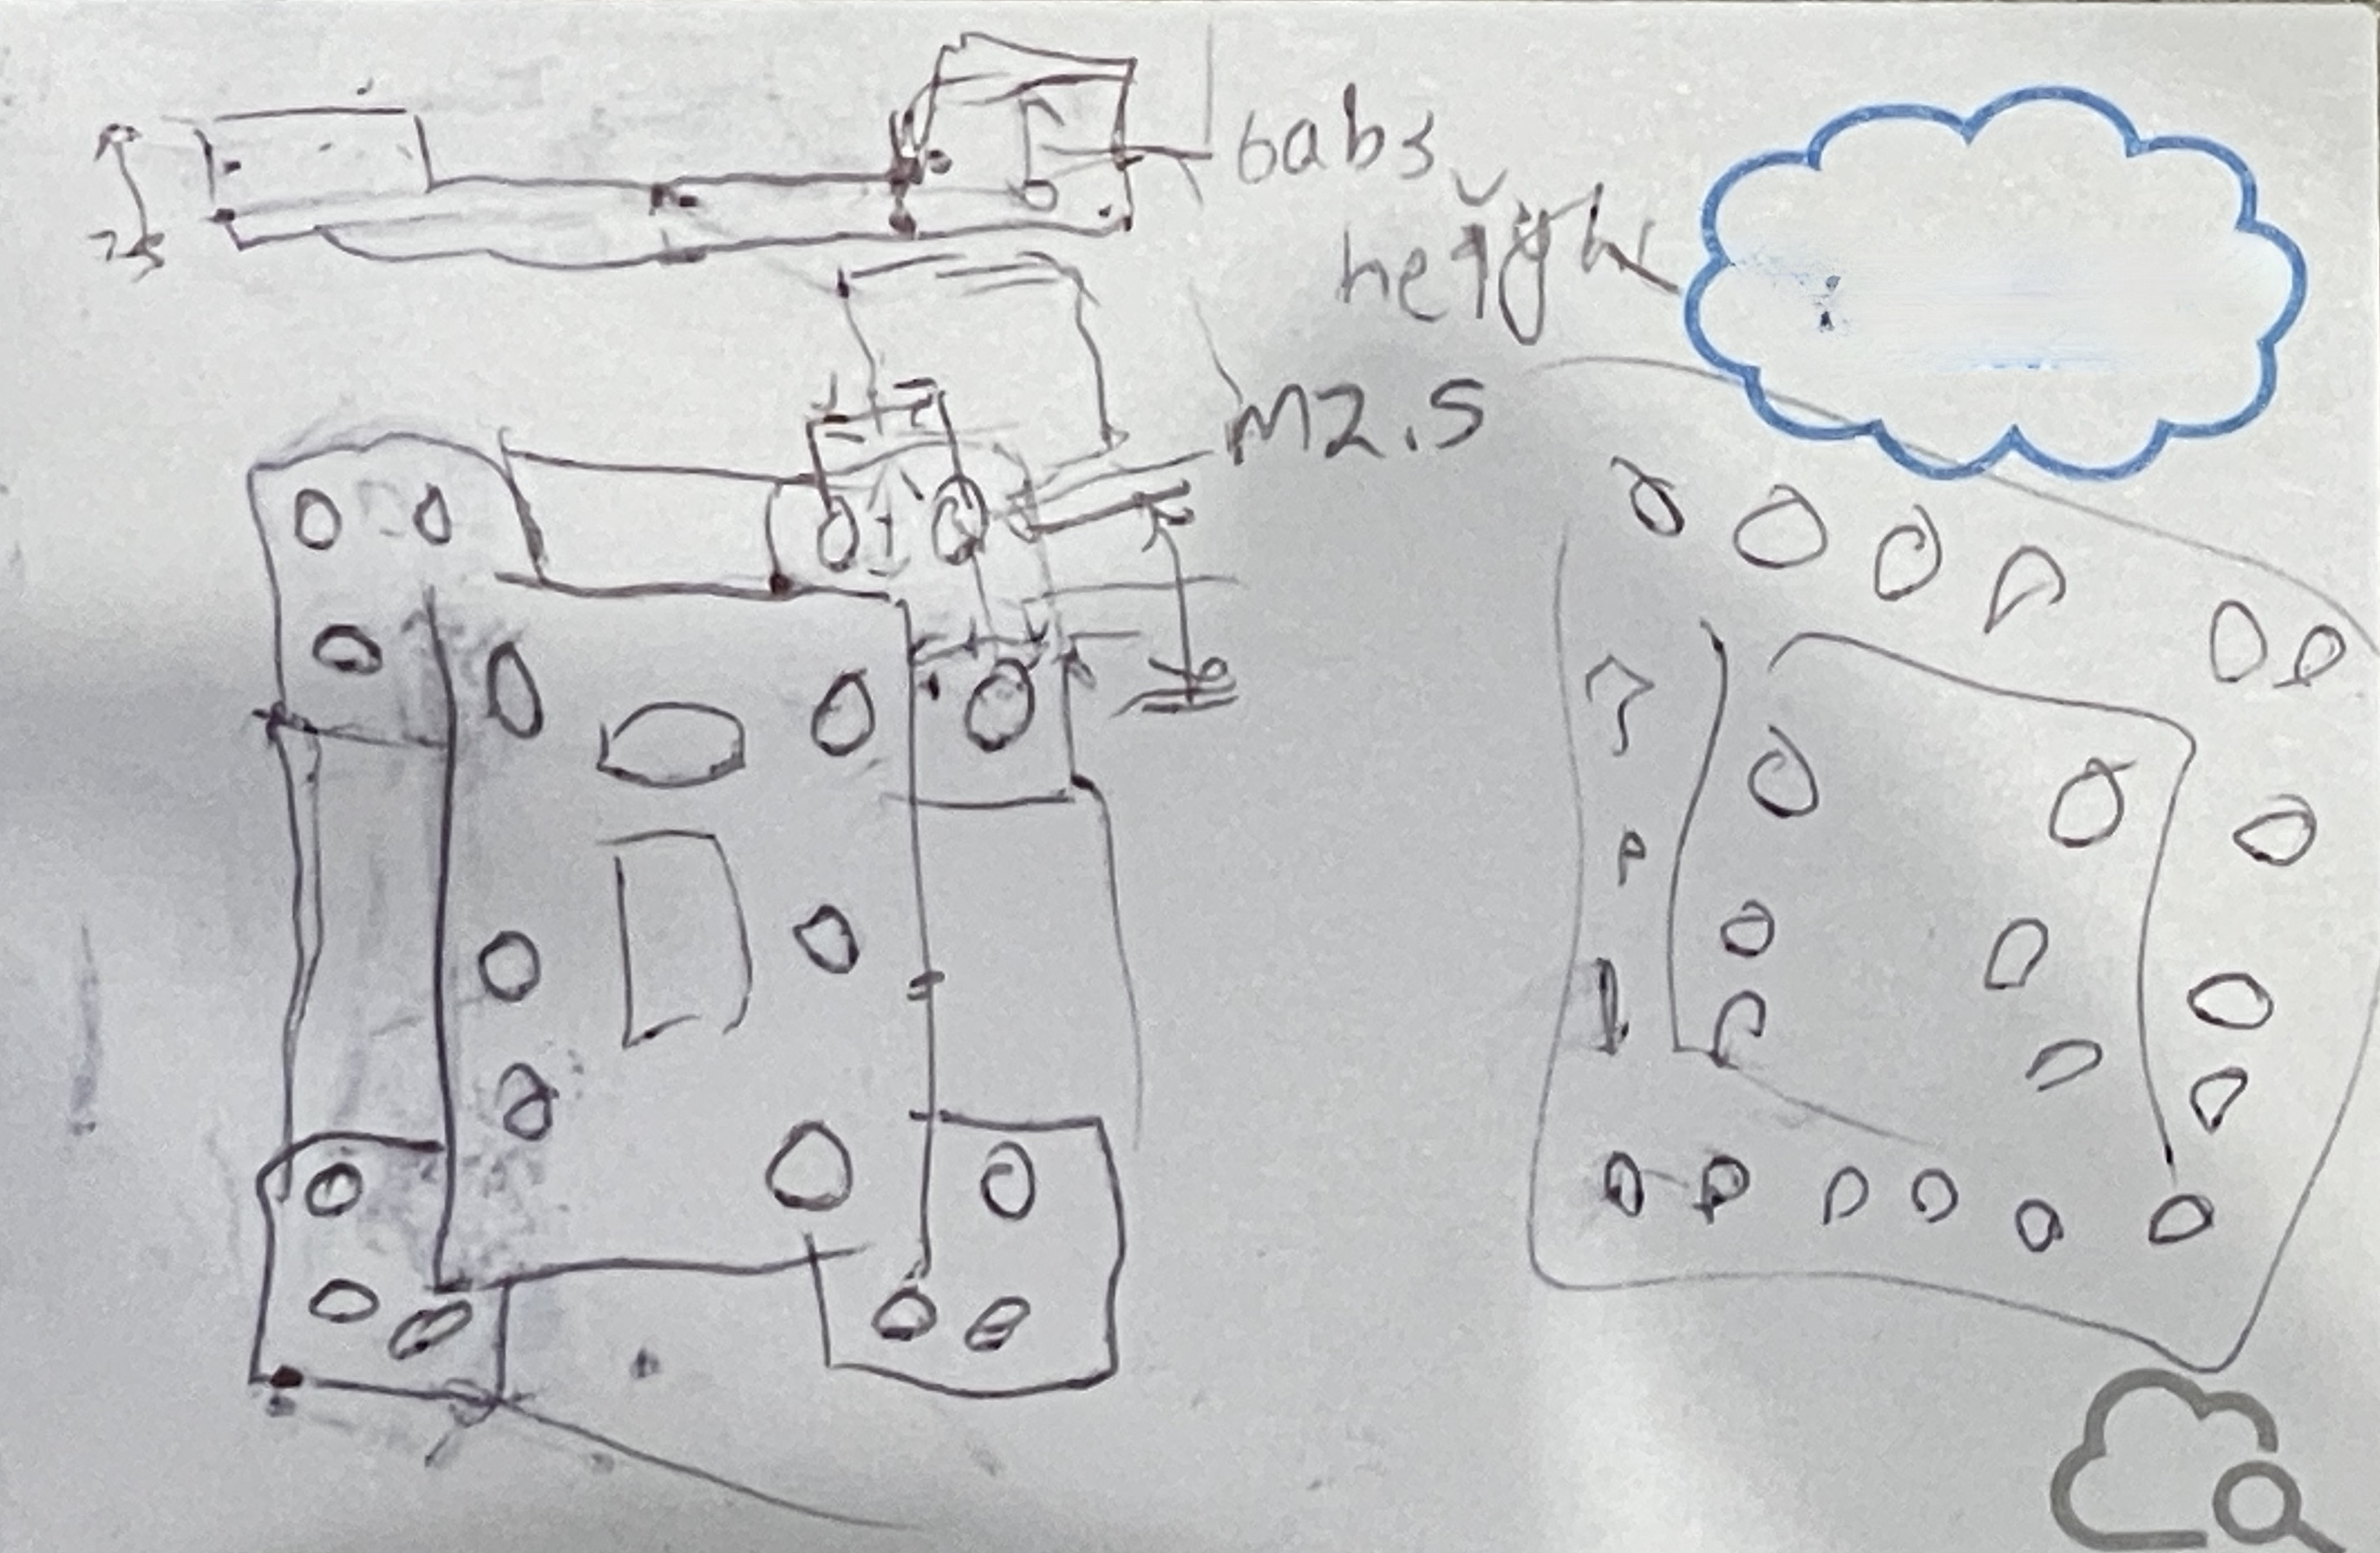 6abs
height
M2.5